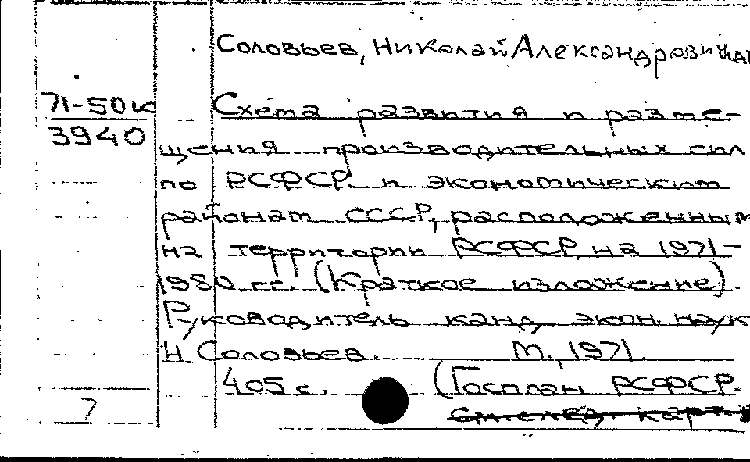 Соловьев, Николай Александрович
71-50к
3940
Схема развития и разме-
щения производительных сил
по РСФСР и экономическим
районам СССР, расположенным
на территории РСФСР, на 1971-
1980 гг. (Краткое изложение).
Руководитель канд. экон. наук
Н. Соловьев. М., 1971.
405 с. (Госплан РСФСР.
7
см. след. карт.